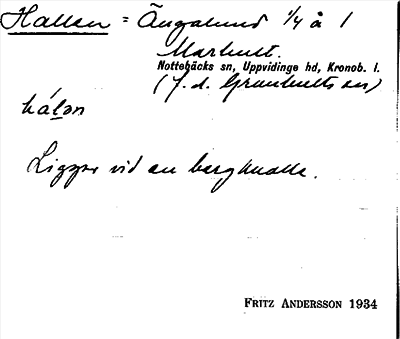 Hallen = Ängalund 1/4 å 1
Marhult.
Nottebäcks sn, Uppvidinge hd, Kronob. l.
(J. d. Granhults sn)
hálən
Ligger vid en bergknalle.
FRITZ ANDERSSON 1934